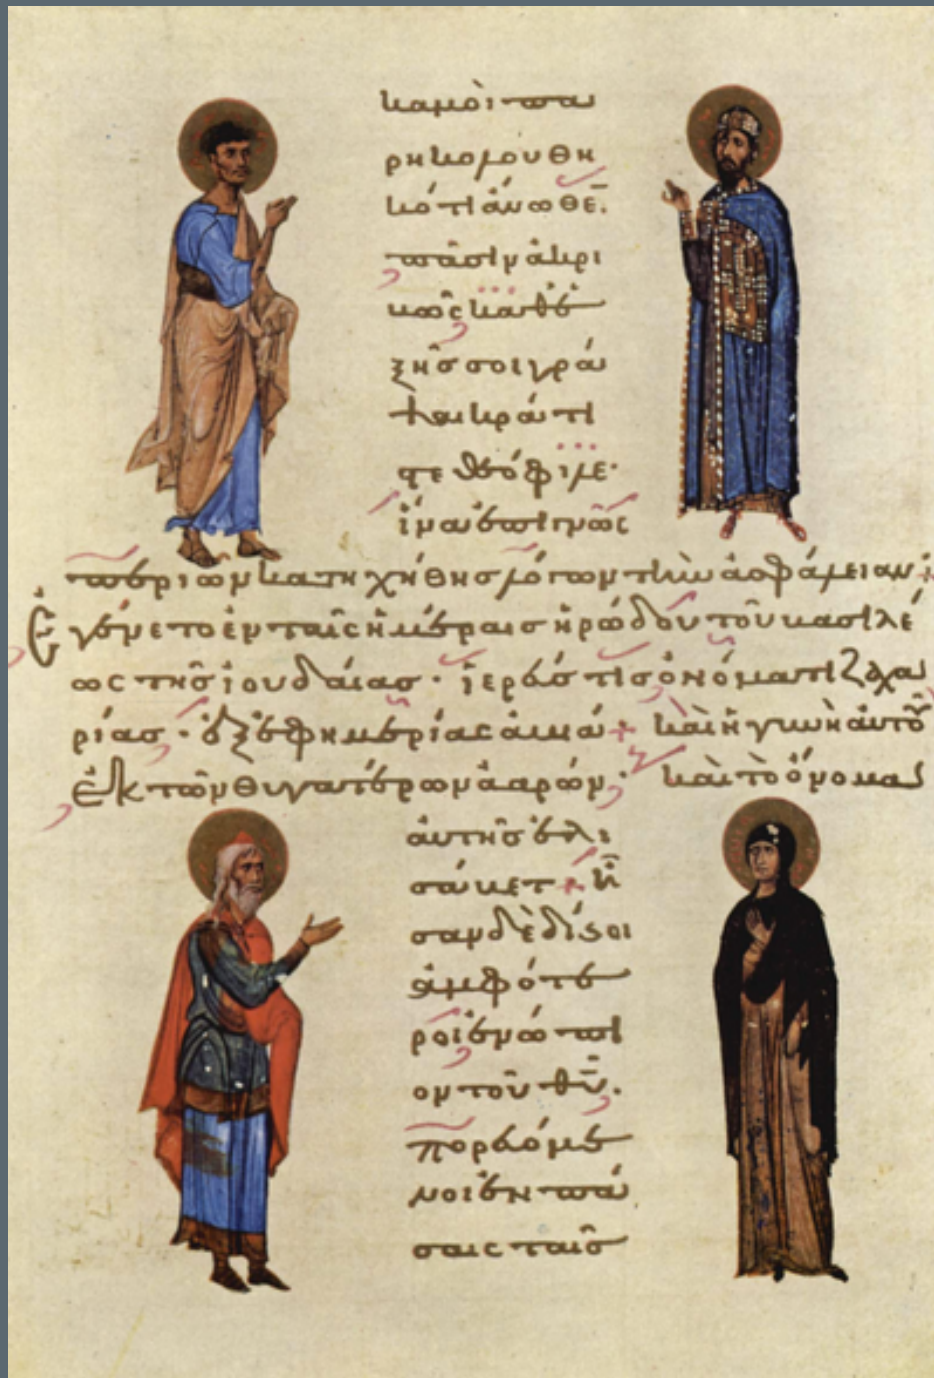 καμοὶ πα
ρηκολουθη
κότι ἄνωθε̄.
πᾶσιν ἀκρι
βῶς καθε
ξῆς σοι γρά
ψαι κράτι
στε θεόφιλε·
ἵνα ἐπιγνῶς
περι ὧν κατηχήθησ λόγων τὴν ἀσφάλειαν
Ἐγένετο ἐν ταῖς ἡμέραισ ἡρώδου τοῦ βασιλέ
ως τῆσ ἰουδαίασ· ἱερεύσ τισ ὀνόματι ζαχα
ρίασ· ἐξ ἐφημερίας ἀβιά· καὶ ἡ γυνὴ αὐτοῦ
ἐκ τῶν θυγατέρων ἀαρών· καὶ τὸ ὄνομα
αὐτῆσ ἐλι
σάβετ ἦ
σαν δὲ δίκαιοι
ἀμφότε
ροι ἐνώπι
ον τοῦ θῦ.
πορευόμε
νοι ἐν πά
σαις ταῖσ